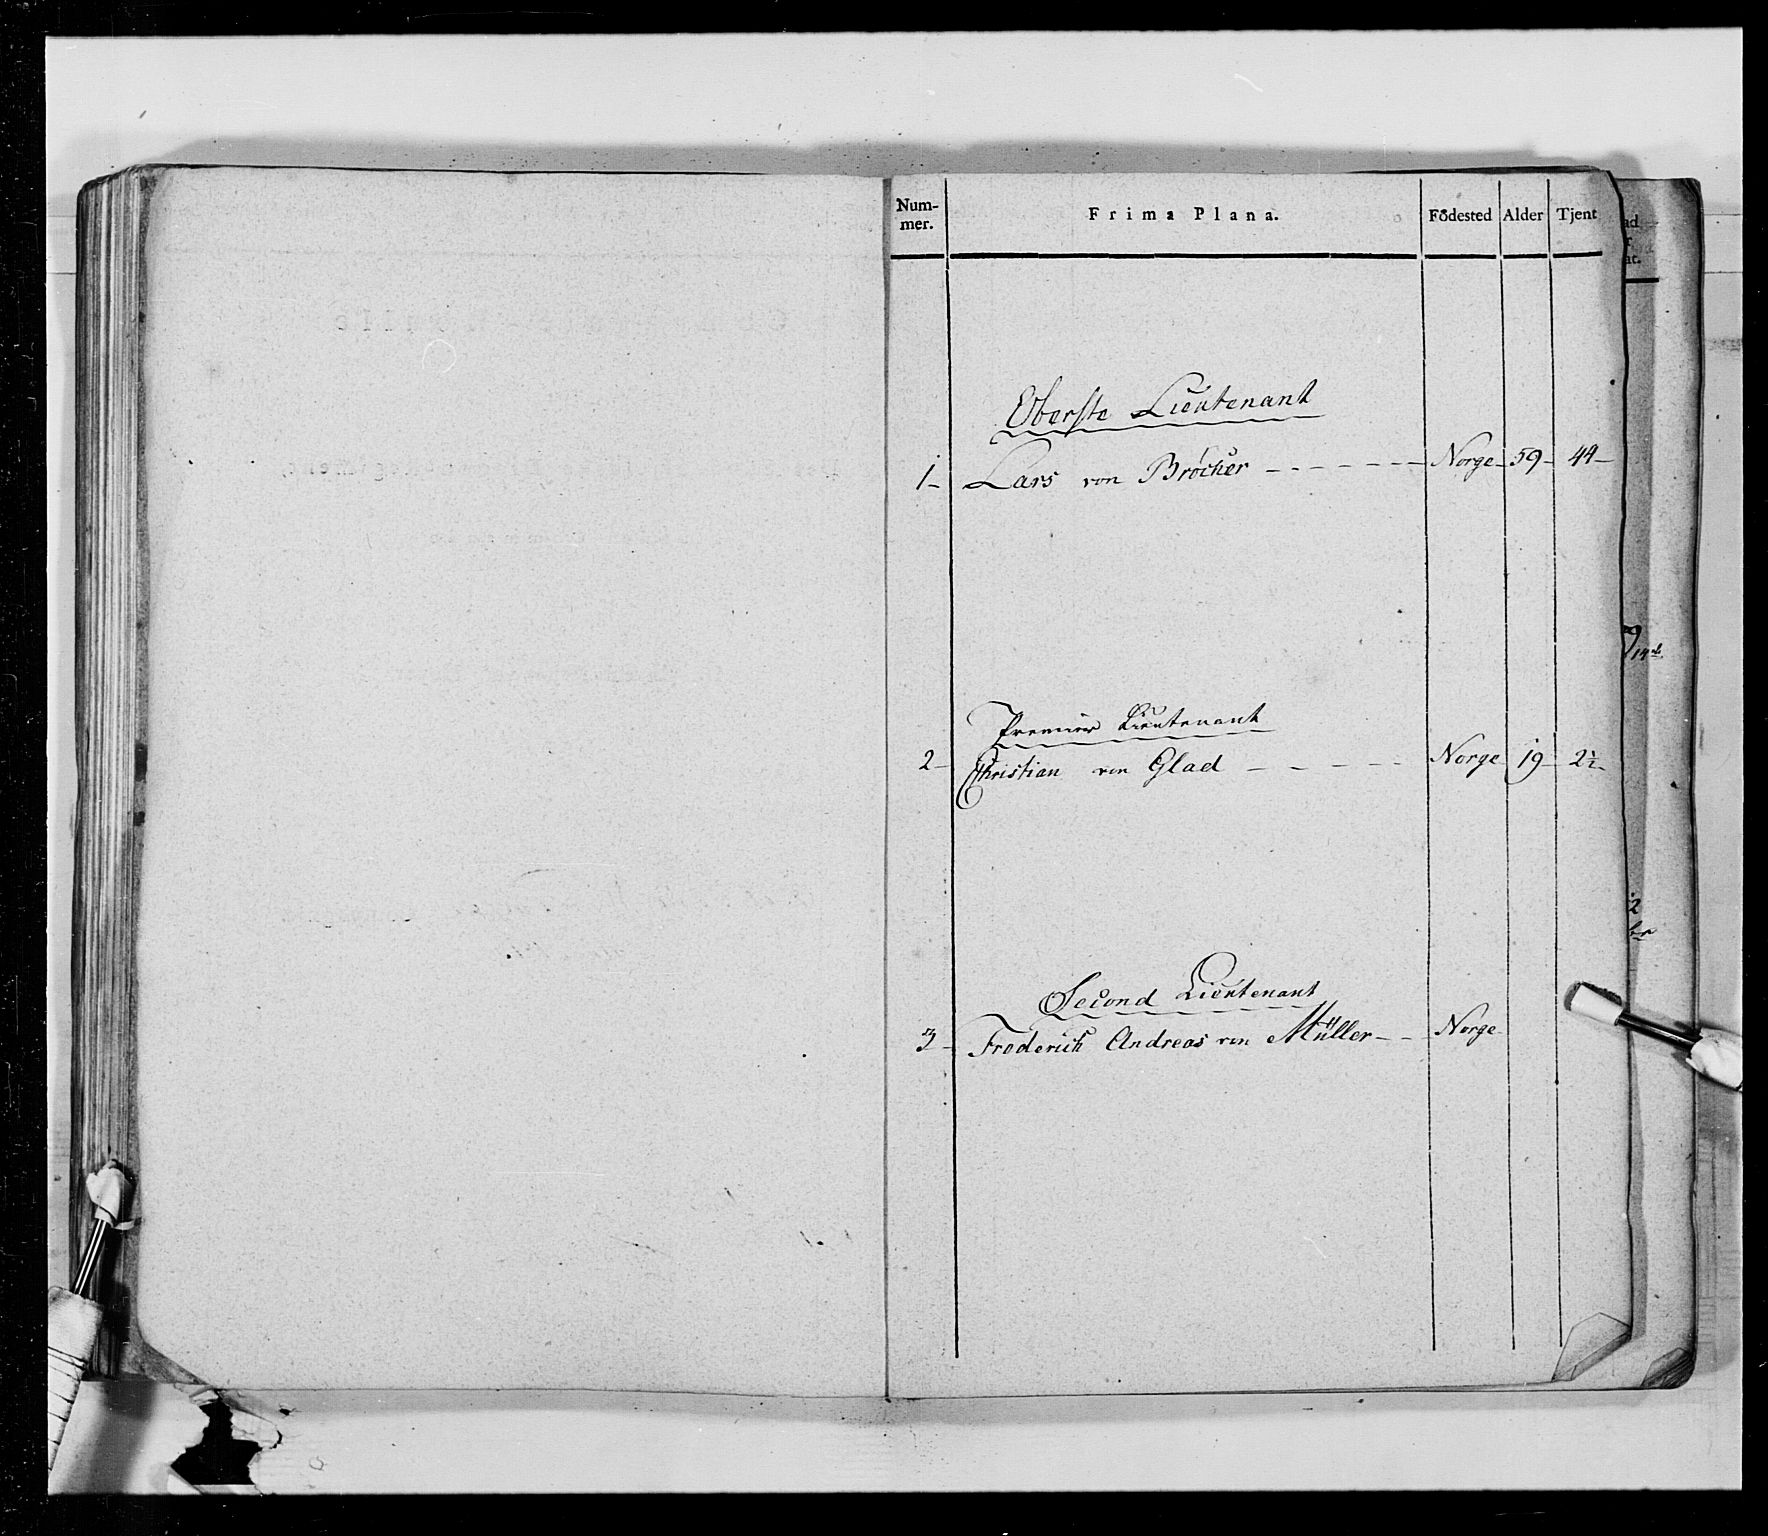 Num-
mer.
Frima Plana.
Födested
Alder
Tjent
Oberste Lieutenant
1 - Lars von Bröcher - - - - - - - Norge - 59 - 44 -
Premier Lieutenant
2 - Christian von Glad - - - - - - Norge - 19 - 2½ -
Second Lieutenant
3 - Frederich Andreas von Müller - - - Norge -